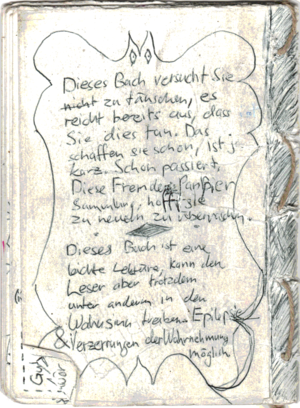 Dieses Buch versucht Sie
nicht zu täuschen, es
reicht bereits aus, dass
Sie dies tun. Das
schaffen sie schon, ist j
kurz. Schon passiert,
Diese Fremde
Sammlung, hofft sie
zu neuem zu überraschen.
Dieses Buch ist eine
leichte Lektüre, kann den
Leser aber trotzdem
unter anderem in den
Wahnsinn treiben. Epilepsie
& Verzerrungen der Wahrnehmung
möglich